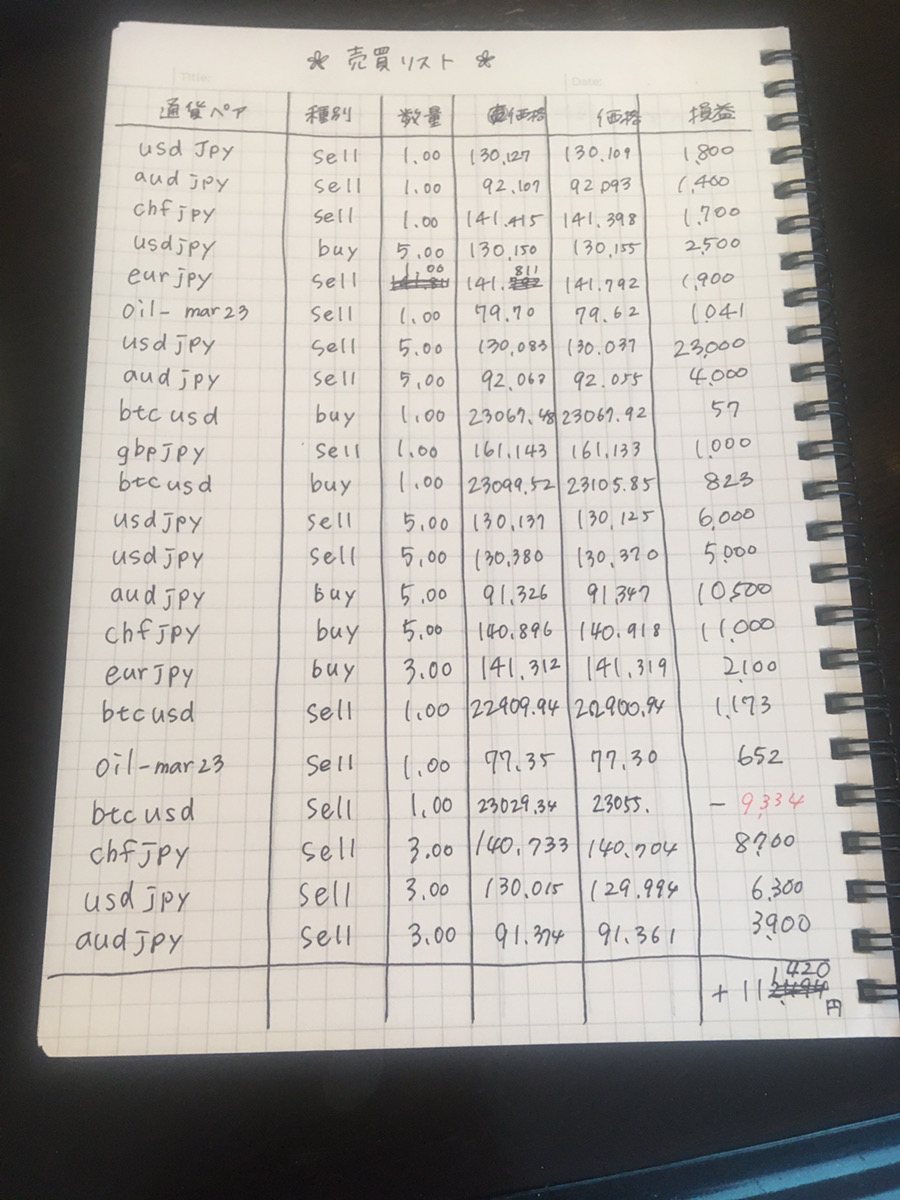 * 売買リスト *
Title: Date:
通貨ペア 種別 数量 価格 価格 損益
usd jpy sell 1.00 130,127 130,109 1,800
aud jpy sell 1.00 92,107 92,093 1,400
chf jpy sell 1.00 141.415 141.398 1,700
usd jpy buy 5.00 130,150 130,155 2,500
eur jpy sell 1.00 141.811 141.792 1,900
oil-mar23 sell 1.00 79.70 79.62 1,041
usd jpy sell 5.00 130,083 130.037 23,000
aud jpy sell 5,00 92,063 92,055 4,000
btc usd buy 1.00 23067.48 23067.92 57
gbp jpy sell 1.00 161,143 161,133 1,000
btc usd buy 1.00 23099.52 23105.85 823
usd jpy sell 5.00 130,137 130,125 6,000
usd jpy sell 5,00 130,380 130,370 5,000
aud jpy buy 5.00 91,326 91,347 10,500
chf jpy buy 5.00 140.896 140.918 11,000
eur jpy buy 3.00 141.312 141.319 2,100
btc usd sell 1.00 22909.94 22900.94 1,173
oil-mar23 sell 1.00 77.35 77.30 652
btc usd sell 1,00 23029.34 23055. - 9,334
chf jpy sell 3.00 140.733 140.704 8,700
usd jpy sell 3,00 130,015 129.994 6,300
aud jpy sell 3.00 91.374 91.361 3,900
+ 111,420円